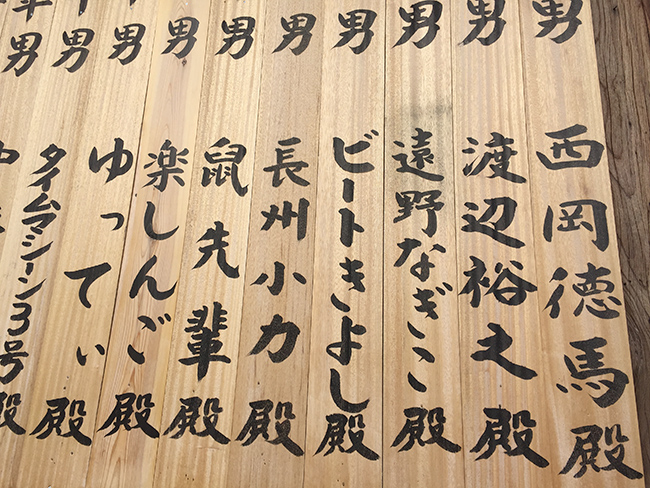 男 西岡徳馬殿
男 渡辺裕之殿
男 遠野なぎこ殿
男 ビートきよし殿
男 長州小力殿
男 鼠先輩殿
男 楽しんご殿
男 ゆってぃ殿
男 タイムマシーン3号殿
殿